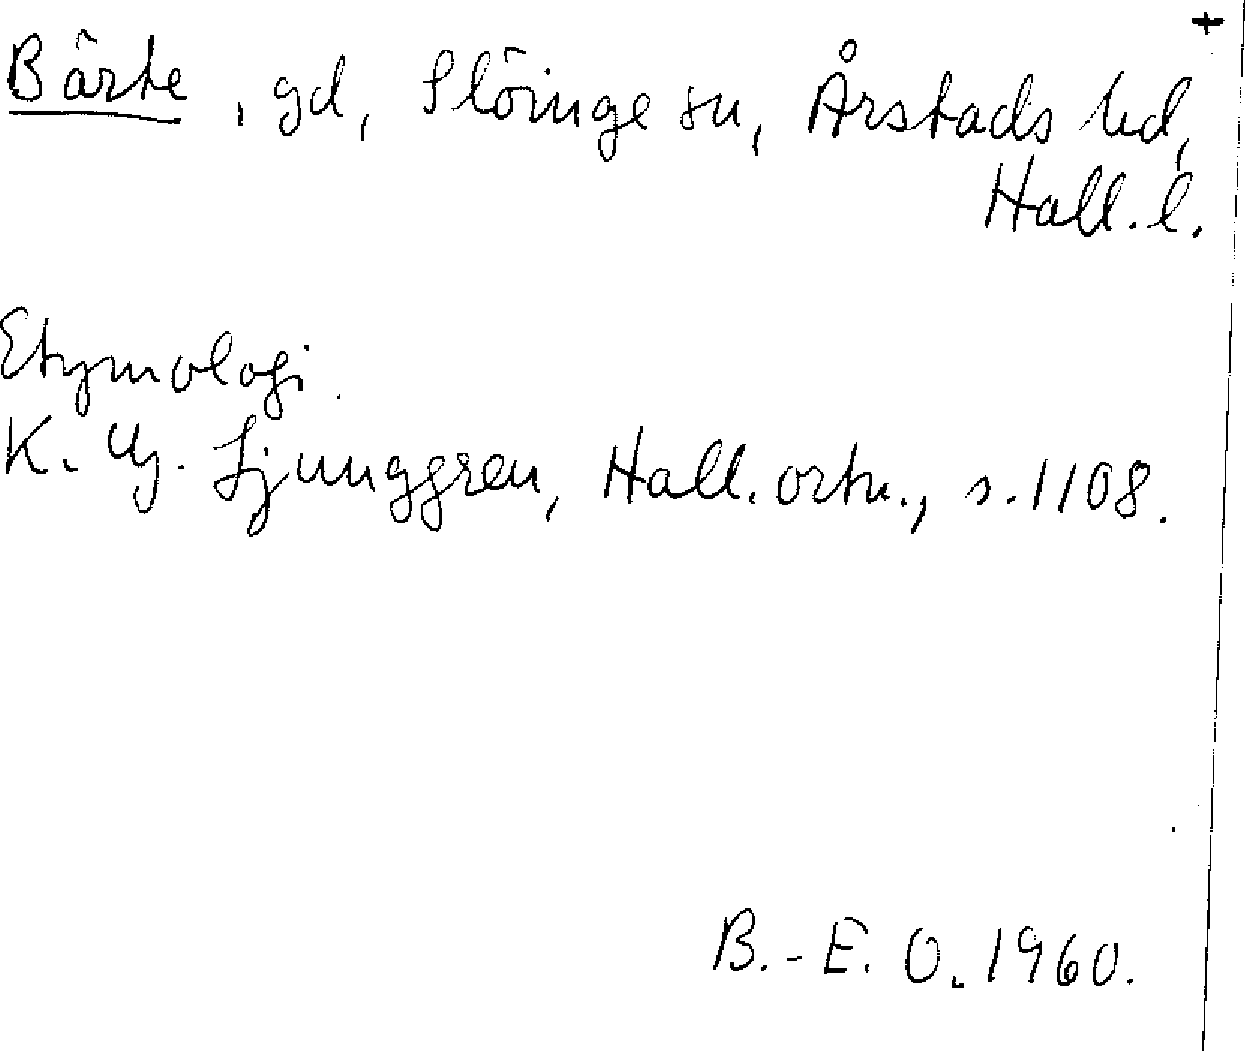 +
Bärte, gd, Slöinge sn, Årstads hd,
Hall. l.
Etymologi.
K. G. Ljunggren, Hall. ortn., s. 1108.
B.-E. O. 1960.